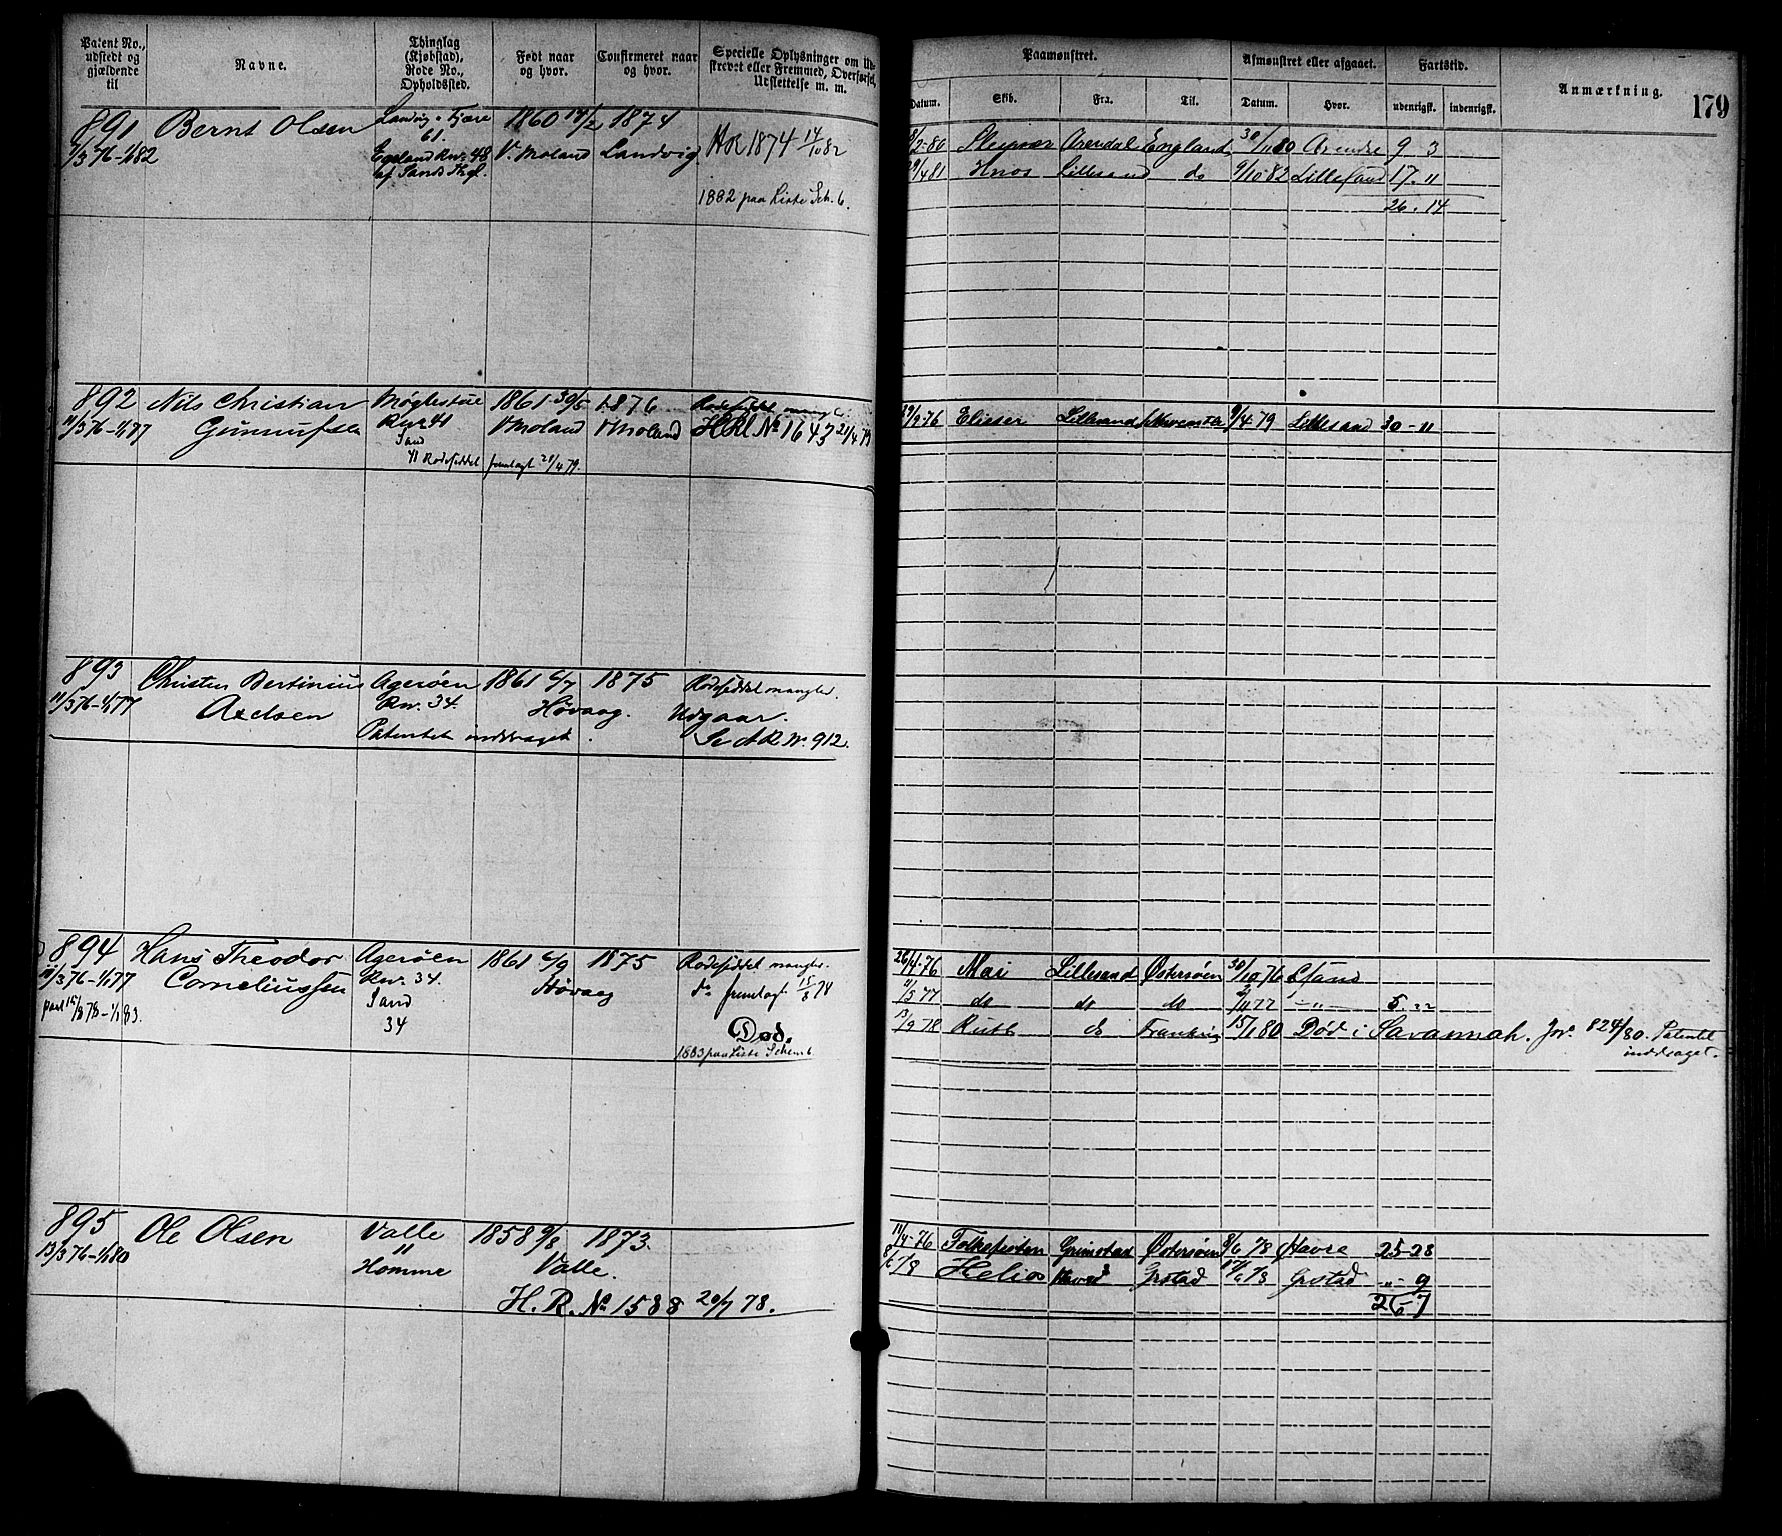 Patent No., udstedt og gjældende til
Navne.
Thinglag (Kjøbstad), Rode No., Opholdssted.
Født naar og hvor.
Confirmeret naar og hvor.
Specielle Oplysninger om Udskrevet eller Fremmed, Overførsel, Udslettelse m. m.
Paamønstret.
Datum.
Skib.
Fra.
Til.
Afmønstret eller afgaaet.
Datum.
Hvor.
Fartstid.
udenrigsk.
indenrigsk.
Anmærkning.
179
891 Bernt Olsen Landvig Fjære 1860 14/2 1874
61.
7/3 76-1/1 82 Egeland Rnr. 48 V. Moland Landvig HR 1874 14/10 82
af Sands Thgl
1882 paa Liste Sch. 6.
2-80 Sleipner Arendal England 30/11 80 9 3
4 81 Knos Lillesand do 9/10 82 Lillesand 17. 11
26. 14
892 Nils Christian Møglestue 1861 30/5 1876 Rodeseddel mangler
11/3 76-1/1 77 Gunnufsen Rnr 41 V Moland V Moland HR No 1643 21/4 79
Sand
41 Rodeseddel fremlagt 21/4 79.
9-76 Elieser Lillesand 9/4 79 Lillesand 30-11
893 Christen Bertinius Agerøen 1861 6/7 1875 Rodeseddel mangler.
11/3 76-1/1 77 Axelsen Rnr. 34. Høvaag. Udgaar.
Patentet inddraget. Se AR Nr. 912.
894 Hans Theodor Agerøen 1861 6/9 1875 Rodeseddel mangler.
11/3 76-1/1 77 Corneliussen Rnr. 34. Høvaag do fremlagt 15/8 78
Sand
34
Død.
1883 paa Liste Schem 6
26/4-76 Mai Lillesand Østersøen 30/10 76 Lsand
11/5 77 do do do 2/11 77 -"- 5. 22
13/9 78 Ruth do 15/1 80 Død i Savannah. Jor. 824/80. Patentet
inddraget.
895 Ole Olsen Valle 1858 9/8 1873.
13/3 76-1/1 80 11 Valle.
Homme
H. R. No 1588 20/7 78.
11/4-76 Folkefesten Grimstad Østersøen 8/6 78 Havre 25-28
8/6 78 Helios Havre Grstad 17/6 78 Grstad "- 9
26-7